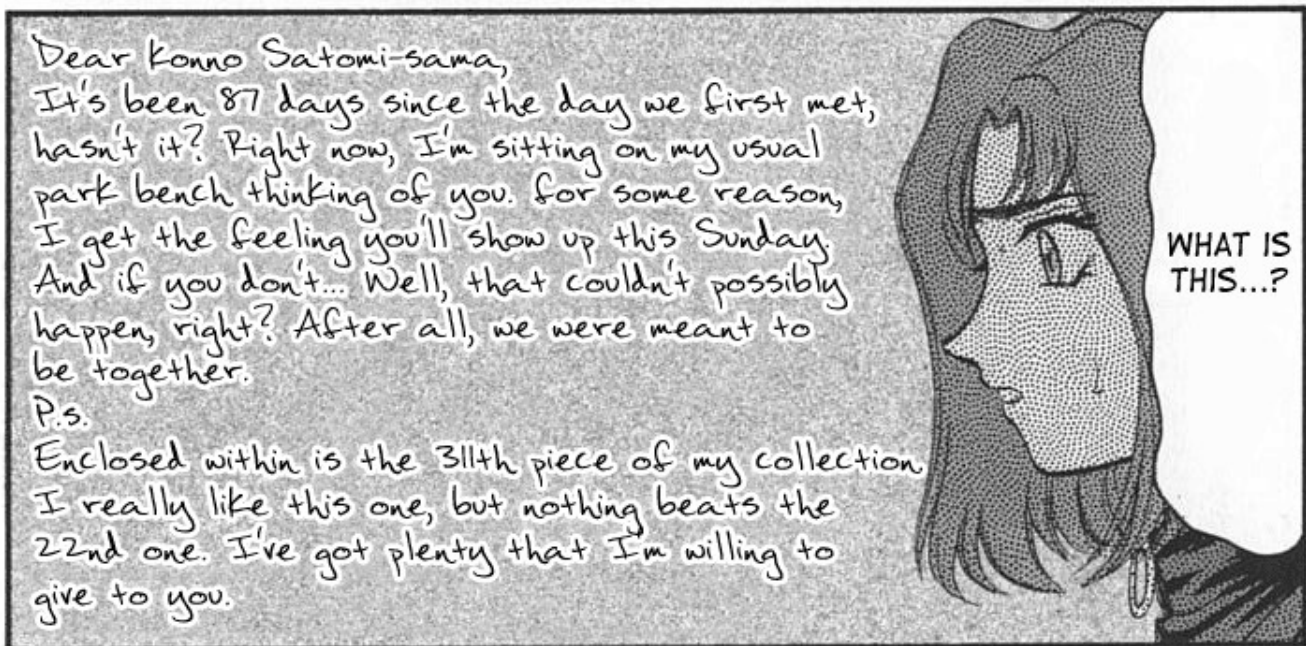 Dear Konno Satomi-sama,
It's been 87 days since the day we first met,
hasn't it? Right now, I'm sitting on my usual
park bench thinking of you. for some reason,
I get the feeling you'll show up this Sunday.
And if you don't... Well, that couldn't possibly
happen, right? After all, we were meant to
be together.
P.s.
Enclosed within is the 311th piece of my collection
I really like this one, but nothing beats the
22nd one. I've got plenty that I'm willing to
give to you.
WHAT IS
THIS...?